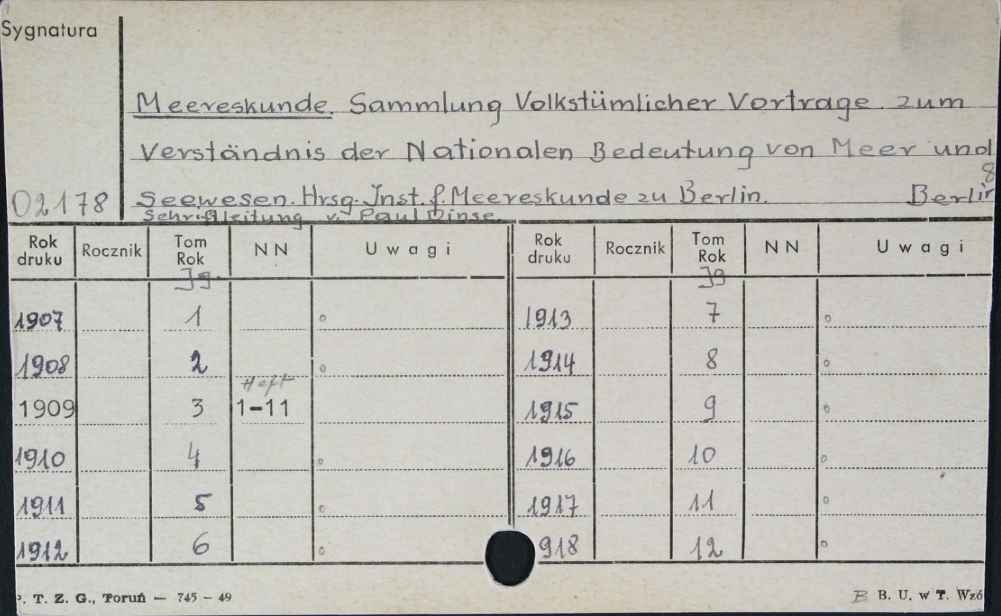 Sygnatura
Meereskunde. Sammlung Volkstümlicher Vortrage zum
Verständnis der Nationalen Bedeutung von Meer und
8
02178 Seewesen. Hrsg. Inst. f. Meereskunde zu Berlin. Berlin
Schriftleitung v. Paul Dinse
Rok druku Rocznik Tom Rok NN Uwagi Rok druku Rocznik Tom Rok NN Uwagi
Jg. Jg
1907 1 1913 7
1908 2 1914 8
Heft
1909 3 1-11 1915 9
1910 4 1916 10
1911 5 1917 11
1912 6 918 12
P. T. Z. G., Toruń — 745 — 49 B B. U. w T. Wzó